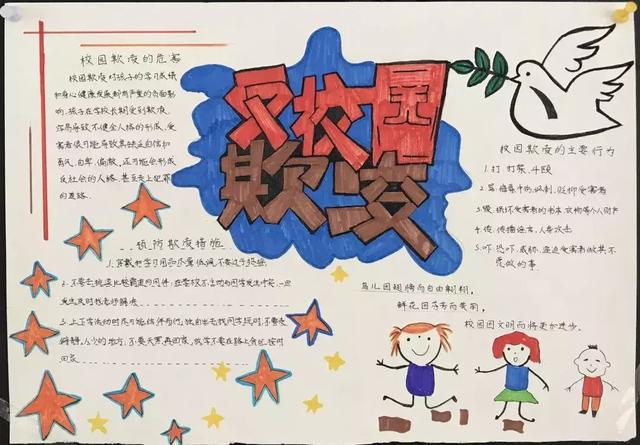 校园欺凌的危害
校园欺凌对孩子的学习成绩
和身心健康发展都有严重的负面影
响. 孩子在学校长期受到欺凌.
容易导致不健全人格的形成. 受
害者很可能导致其缺乏自信和
勇气, 自卑、偏激, 还可能会形成
反社会的人格. 甚至走上犯罪
的道路.
校园
欺凌
校园欺凌的主要行为
1. 打. 打架、斗殴
2. 骂
3. 毁. 损坏受害者的书本. 衣物等个人财产
4. 传. 传播谣言. 人身攻击
5. 吓. 恐吓. 威胁. 逼迫受害者做其不
愿做的事.
预防欺凌措施
1. 穿戴和学习用品尽量低调, 不要过于招摇
2. 不要去挑逗比较霸道的同伴. 在学校不主动和同学发生冲突. 一旦
发生及时找老师解决
3. 上下学活动时尽可能结伴而行. 独自出去找同学玩时, 不要走
僻静、人少的地方. 不要天黑再回家, 放学不要在路上贪玩. 按时
回家
鸟儿因翅膀而自由翱翔.
鲜花因芬芳而美丽.
校园因文明而将更加进步.